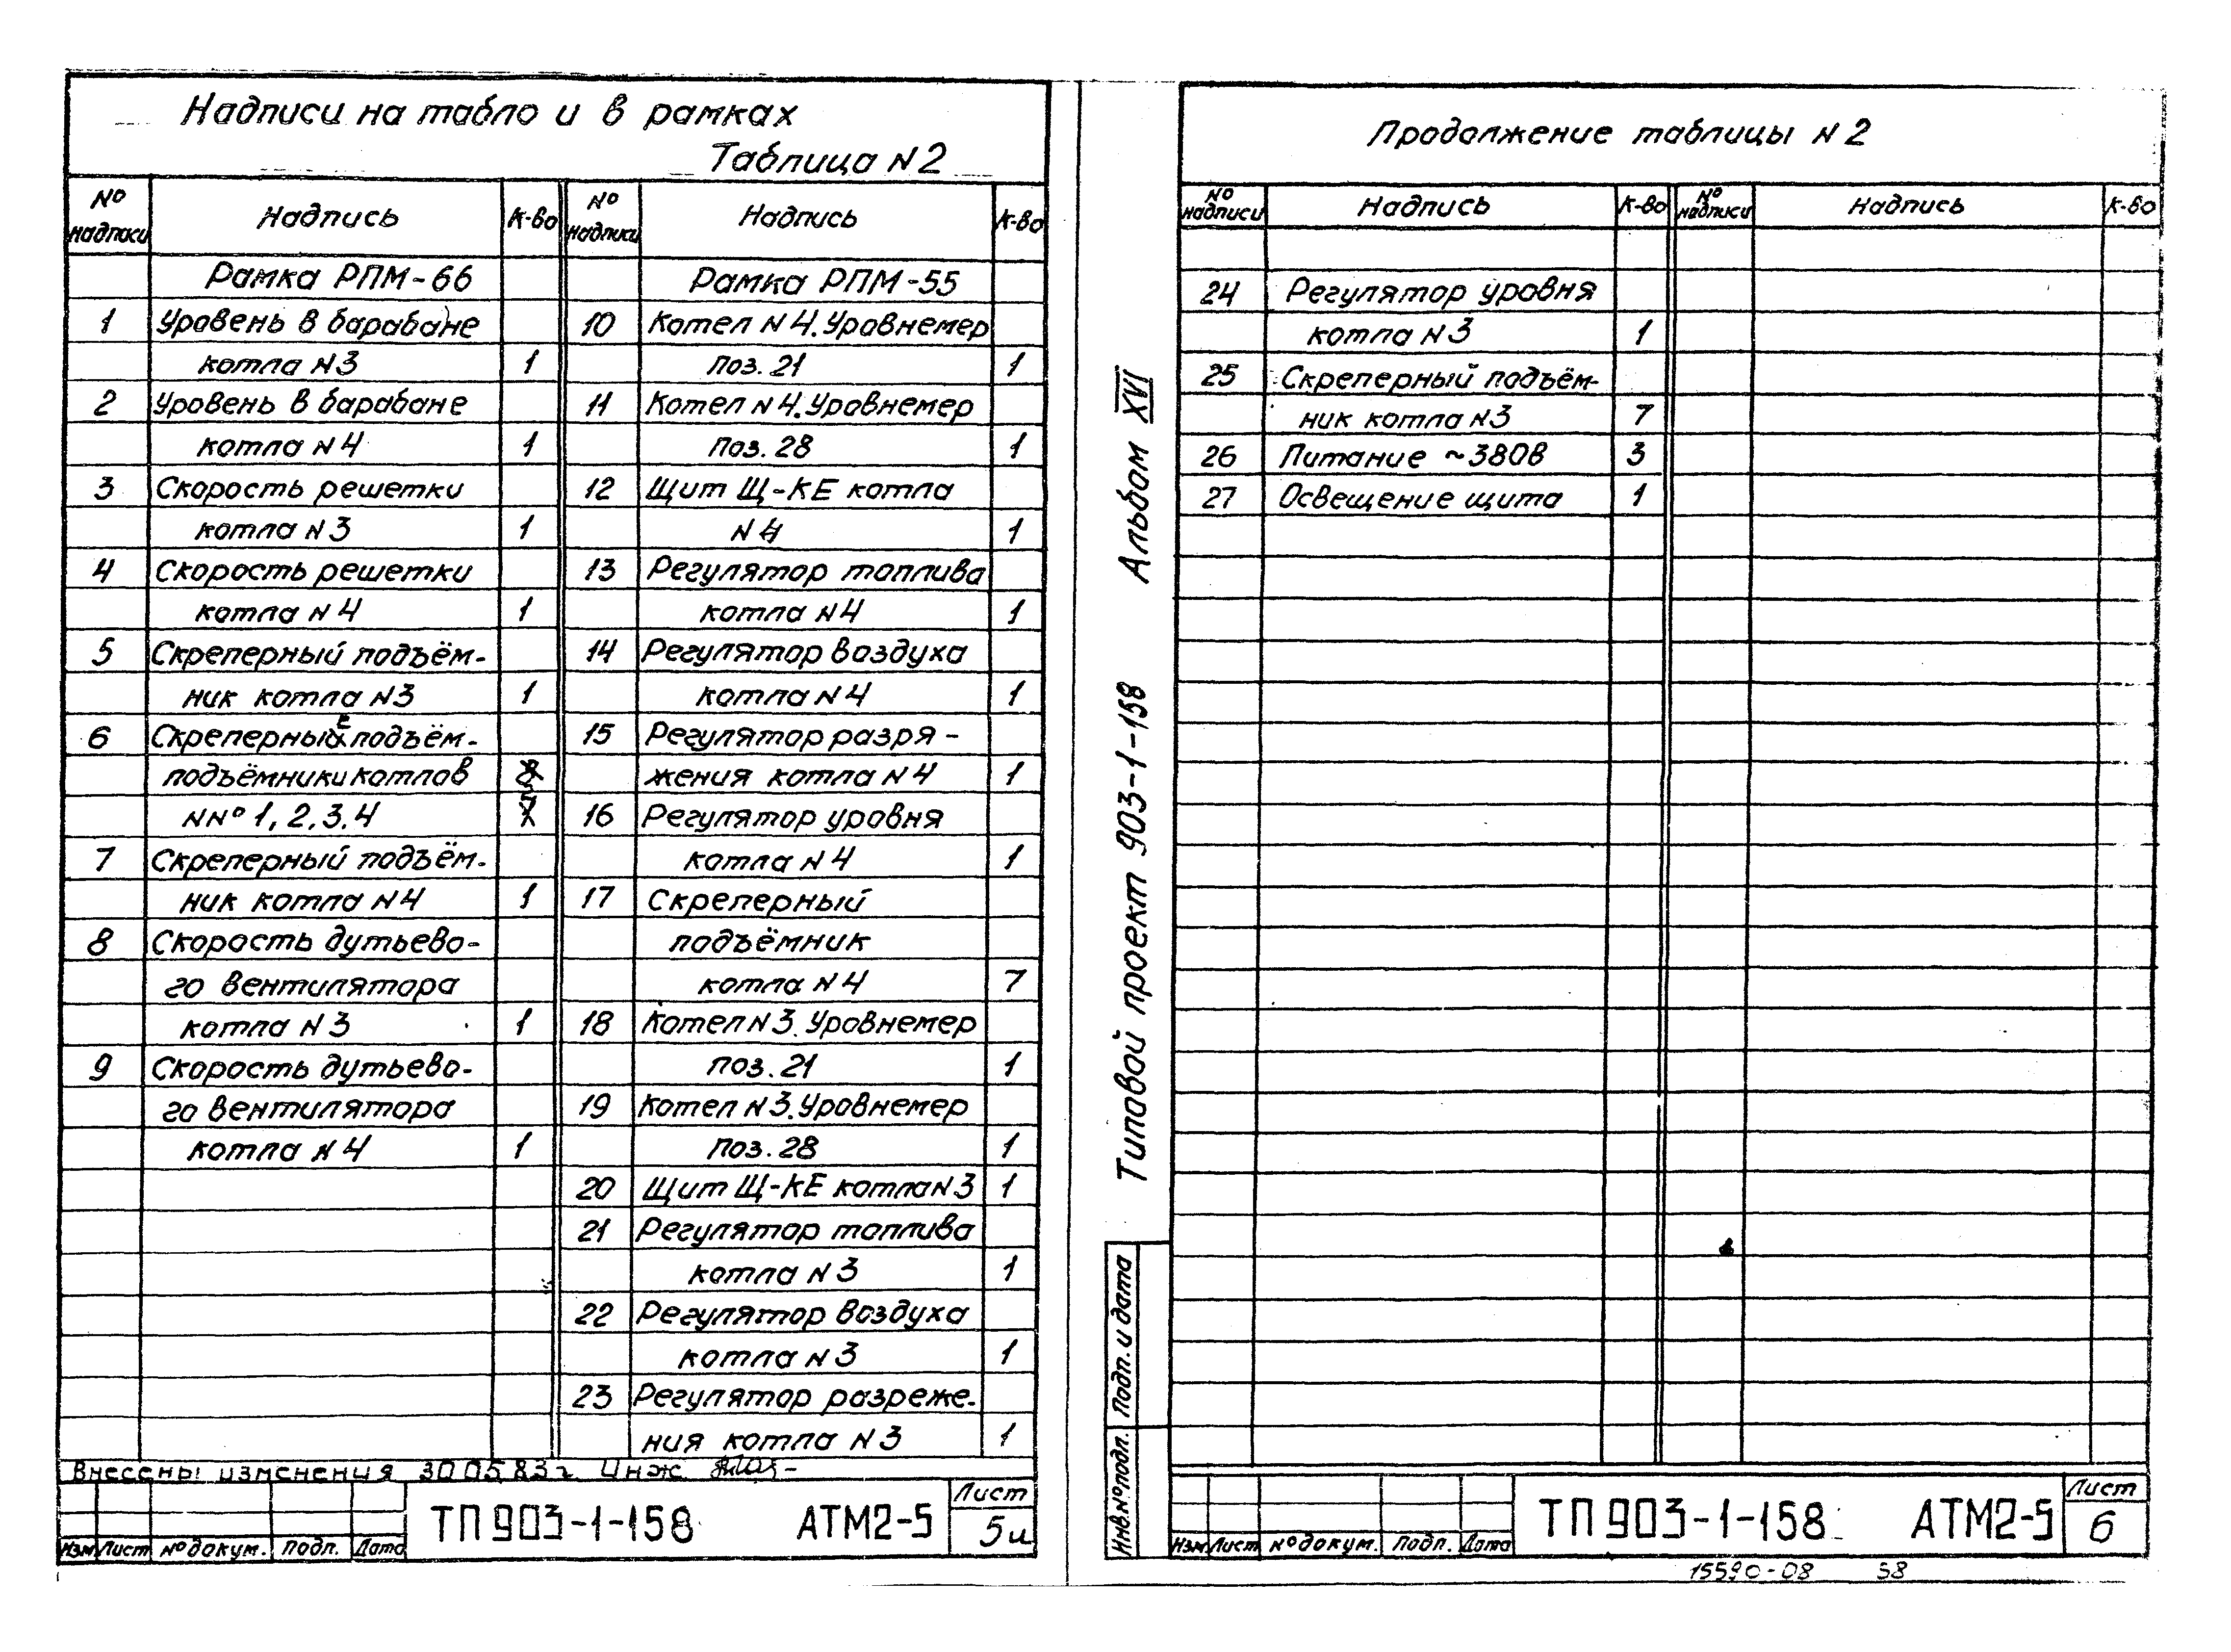 Надписи на табло и в рамках
Таблица N2
№ надписи Надпись К-во № надписи Надпись К-во
Рамка РПМ-66
1 Уровень в барабане
котла N3 1
2 Уровень в барабане
котла N4 1
3 Скорость решетки
котла N3 1
4 Скорость решетки
котла N4 1
5 Скреперный подъём-
ник котла N3 1
6 Скреперные подъём-
подъёмники котлов
NNº 1, 2, 3, 4
7 Скреперный подъём-
ник котла N4 1
8 Скорость дутьево-
го вентилятора
котла N3 1
9 Скорость дутьево-
го вентилятора
котла N4 1
Рамка РПМ-55
10 Котел N4. Уровнемер
поз. 21 1
11 Котел N4. Уровнемер
поз. 28 1
12 Щит Щ-КЕ котла
N4 1
13 Регулятор топлива
котла N4 1
14 Регулятор воздуха
котла N4 1
15 Регулятор разря-
жения котла N4 1
16 Регулятор уровня
котла N4 1
17 Скреперный
подъёмник
котла N4 7
18 Котел N3. Уровнемер
поз. 21 1
19 Котел N3. Уровнемер
поз. 28 1
20 Щит Щ-КЕ котла N3 1
21 Регулятор топлива
котла N3 1
22 Регулятор воздуха
котла N3 1
23 Регулятор разреже-
ния котла N3 1
Внесены изменения 30 05 83 г. Инж
Изм Лист № докум. Подп. Дата
ТП 903-1-158 АТМ2-5
Лист
5и
Альбом XVI
Типовой проект 903-1-158
Подп. и дата
Инв.№ подл.
Продолжение таблицы N2
№ надписи Надпись К-во № надписи Надпись К-во
24 Регулятор уровня
котла N3 1
25 Скреперный подъём-
ник котла N3 7
26 Питание ~380В 3
27 Освещение щита 1
Изм Лист № докум. Подп. Дата
ТП 903-1-158 АТМ2-5
Лист
6
15590-08 58